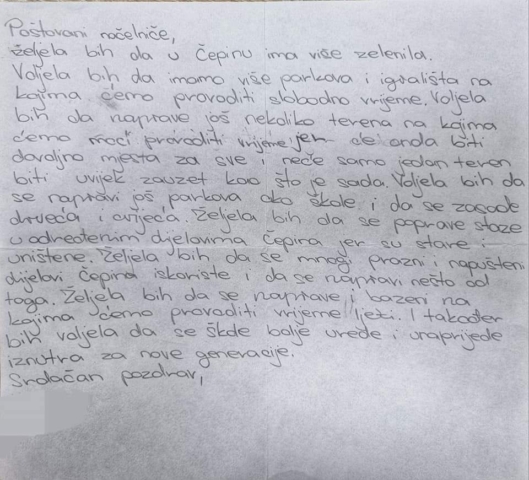 Poštovani načelniče,
željela bih da u Čepinu ima više zelenila.
Voljela bih da imamo više parkova i igrališta na
kojima ćemo provoditi slobodno vrijeme. Voljela
bih da naprave još nekoliko terena na kojima
ćemo moći provoditi vrijeme jer će onda biti
dovoljno mjesta za sve i neće samo jedan teren
biti uvijek zauzet kao što je sada. Voljela bih da
se napravi još parkova oko škole i da se zasade
drveća i cvijeća. Željela bih da se poprave staze
u određenim dijelovima Čepina jer su stare i
uništene. Željela bih da se mnogi prazni i napušteni
dijelovi Čepina iskoriste i da se napravi nešto od
toga. Željela bih da se naprave i bazeni na
kojima ćemo provoditi vrijeme ljeti. I također
bih voljela da se škole bolje urede i unaprijede
iznutra za nove generacije.
Srdačan pozdrav,